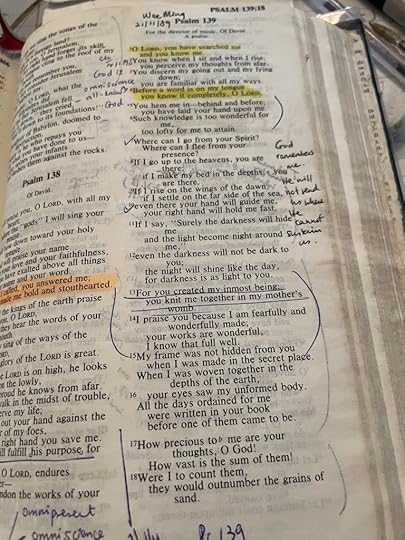 PSALM 139:18
Wee Ming
21/11/09
Psalm 139
For the director of music. Of David.
A psalm.
¹O LORD, you have searched me
and you know me.
²You know when I sit and when I rise;
you perceive my thoughts from afar.
³You discern my going out and my lying
down;
you are familiar with all my ways.
⁴Before a word is on my tongue
you know it completely, O LORD.
⁵You hem me in—behind and before;
you have laid your hand upon me.
⁶Such knowledge is too wonderful for
me,
too lofty for me to attain.
⁷Where can I go from your Spirit?
Where can I flee from your
presence?
⁸If I go up to the heavens, you are
there;
if I make my bed in the depths, you
⁹If I rise on the wings of the dawn,
if I settle on the far side of the sea,
¹⁰even there your hand will guide me,
your right hand will hold me fast.
¹¹If I say, "Surely the darkness will hide
me
and the light become night around
¹²even the darkness will not be dark to
you;
the night will shine like the day,
for darkness is as light to you.
¹³For you created my inmost being;
you knit me together in my mother's
womb.
¹⁴I praise you because I am fearfully and
wonderfully made;
your works are wonderful,
I know that full well.
¹⁵My frame was not hidden from you
when I was made in the secret place.
When I was woven together in the
depths of the earth,
¹⁶ your eyes saw my unformed body.
All the days ordained for me
were written in your book
before one of them came to be.
¹⁷How precious to me are your
thoughts, O God!
How vast is the sum of them!
¹⁸Were I to count them,
they would outnumber the grains of
sand.
God
remembers
me. He
will
not send
us where
He
cannot
sustain
us.
God is
omniscience
God
the songs of the
forget its skill,
to the roof of my
remember you,
Jerusalem
LORD, what the
Jerusalem fell.
to its foundations!"
of Babylon, doomed to
who repays you
you have done to us—
your infants
them against the rocks.
Psalm 138
Of David.
you, O LORD, with all my
the "gods" I will sing your
down toward your holy
praise your name
love and your faithfulness,
have exalted above all things
and your word.
called, you answered me;
made me bold and stouthearted.
the kings of the earth praise
you, O LORD,
they hear the words of your
sing of the ways of the
glory of the LORD is great.
the LORD is on high, he looks
the lowly,
proud he knows from afar.
walk in the midst of trouble,
serve my life;
out your hand against the
of my foes,
right hand you save me.
will fulfill his purpose, for
O LORD, endures
abandon the works of your
omnipresent
omniscience
Ps 139